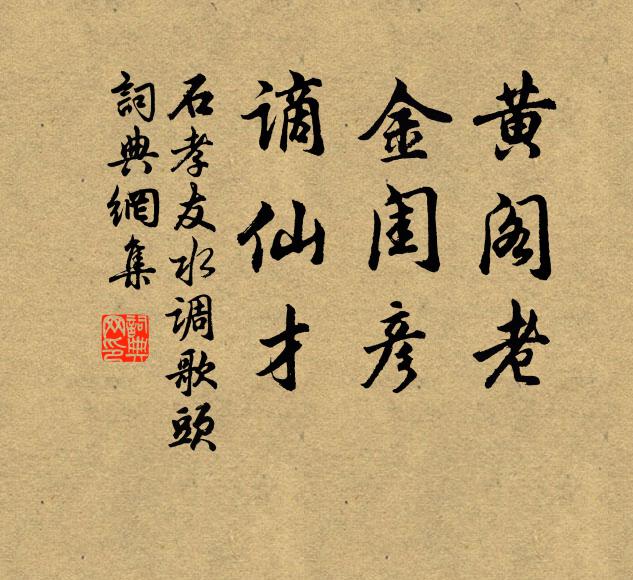 黄阁老
金闺彦
谪仙才
石孝友水调歌頭
詞典網集
詞典网印